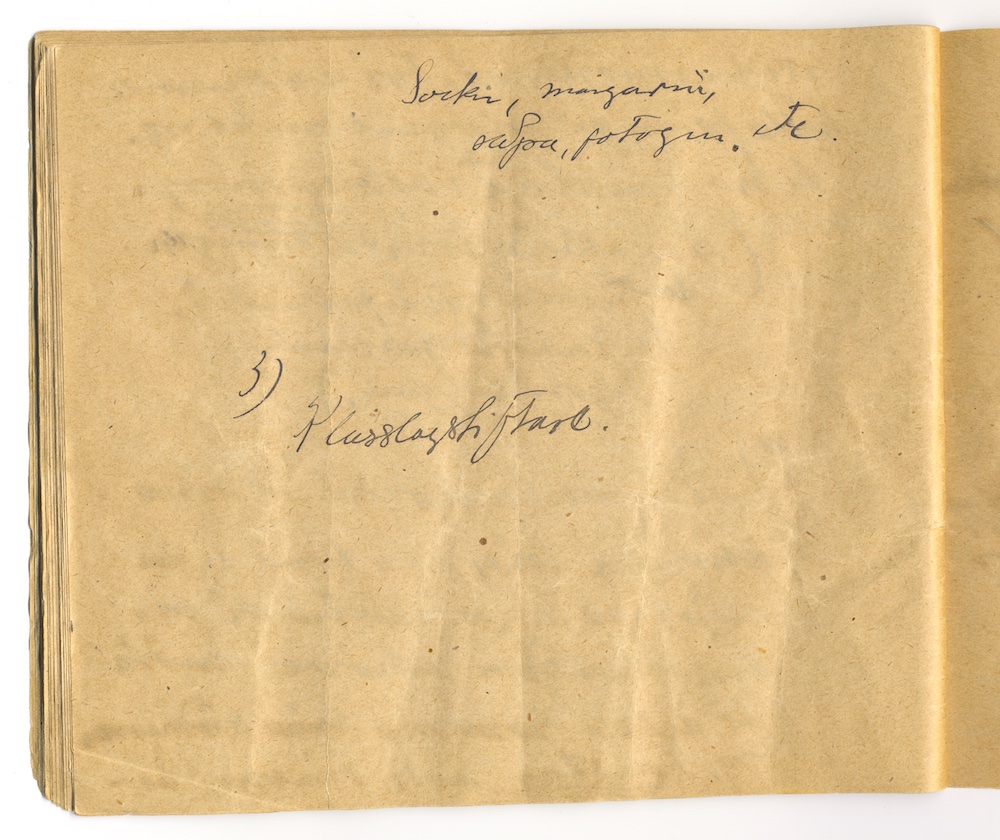 Socker, margarin,
såpa, fotogen. etc.
3)
Klasslagstiftare.